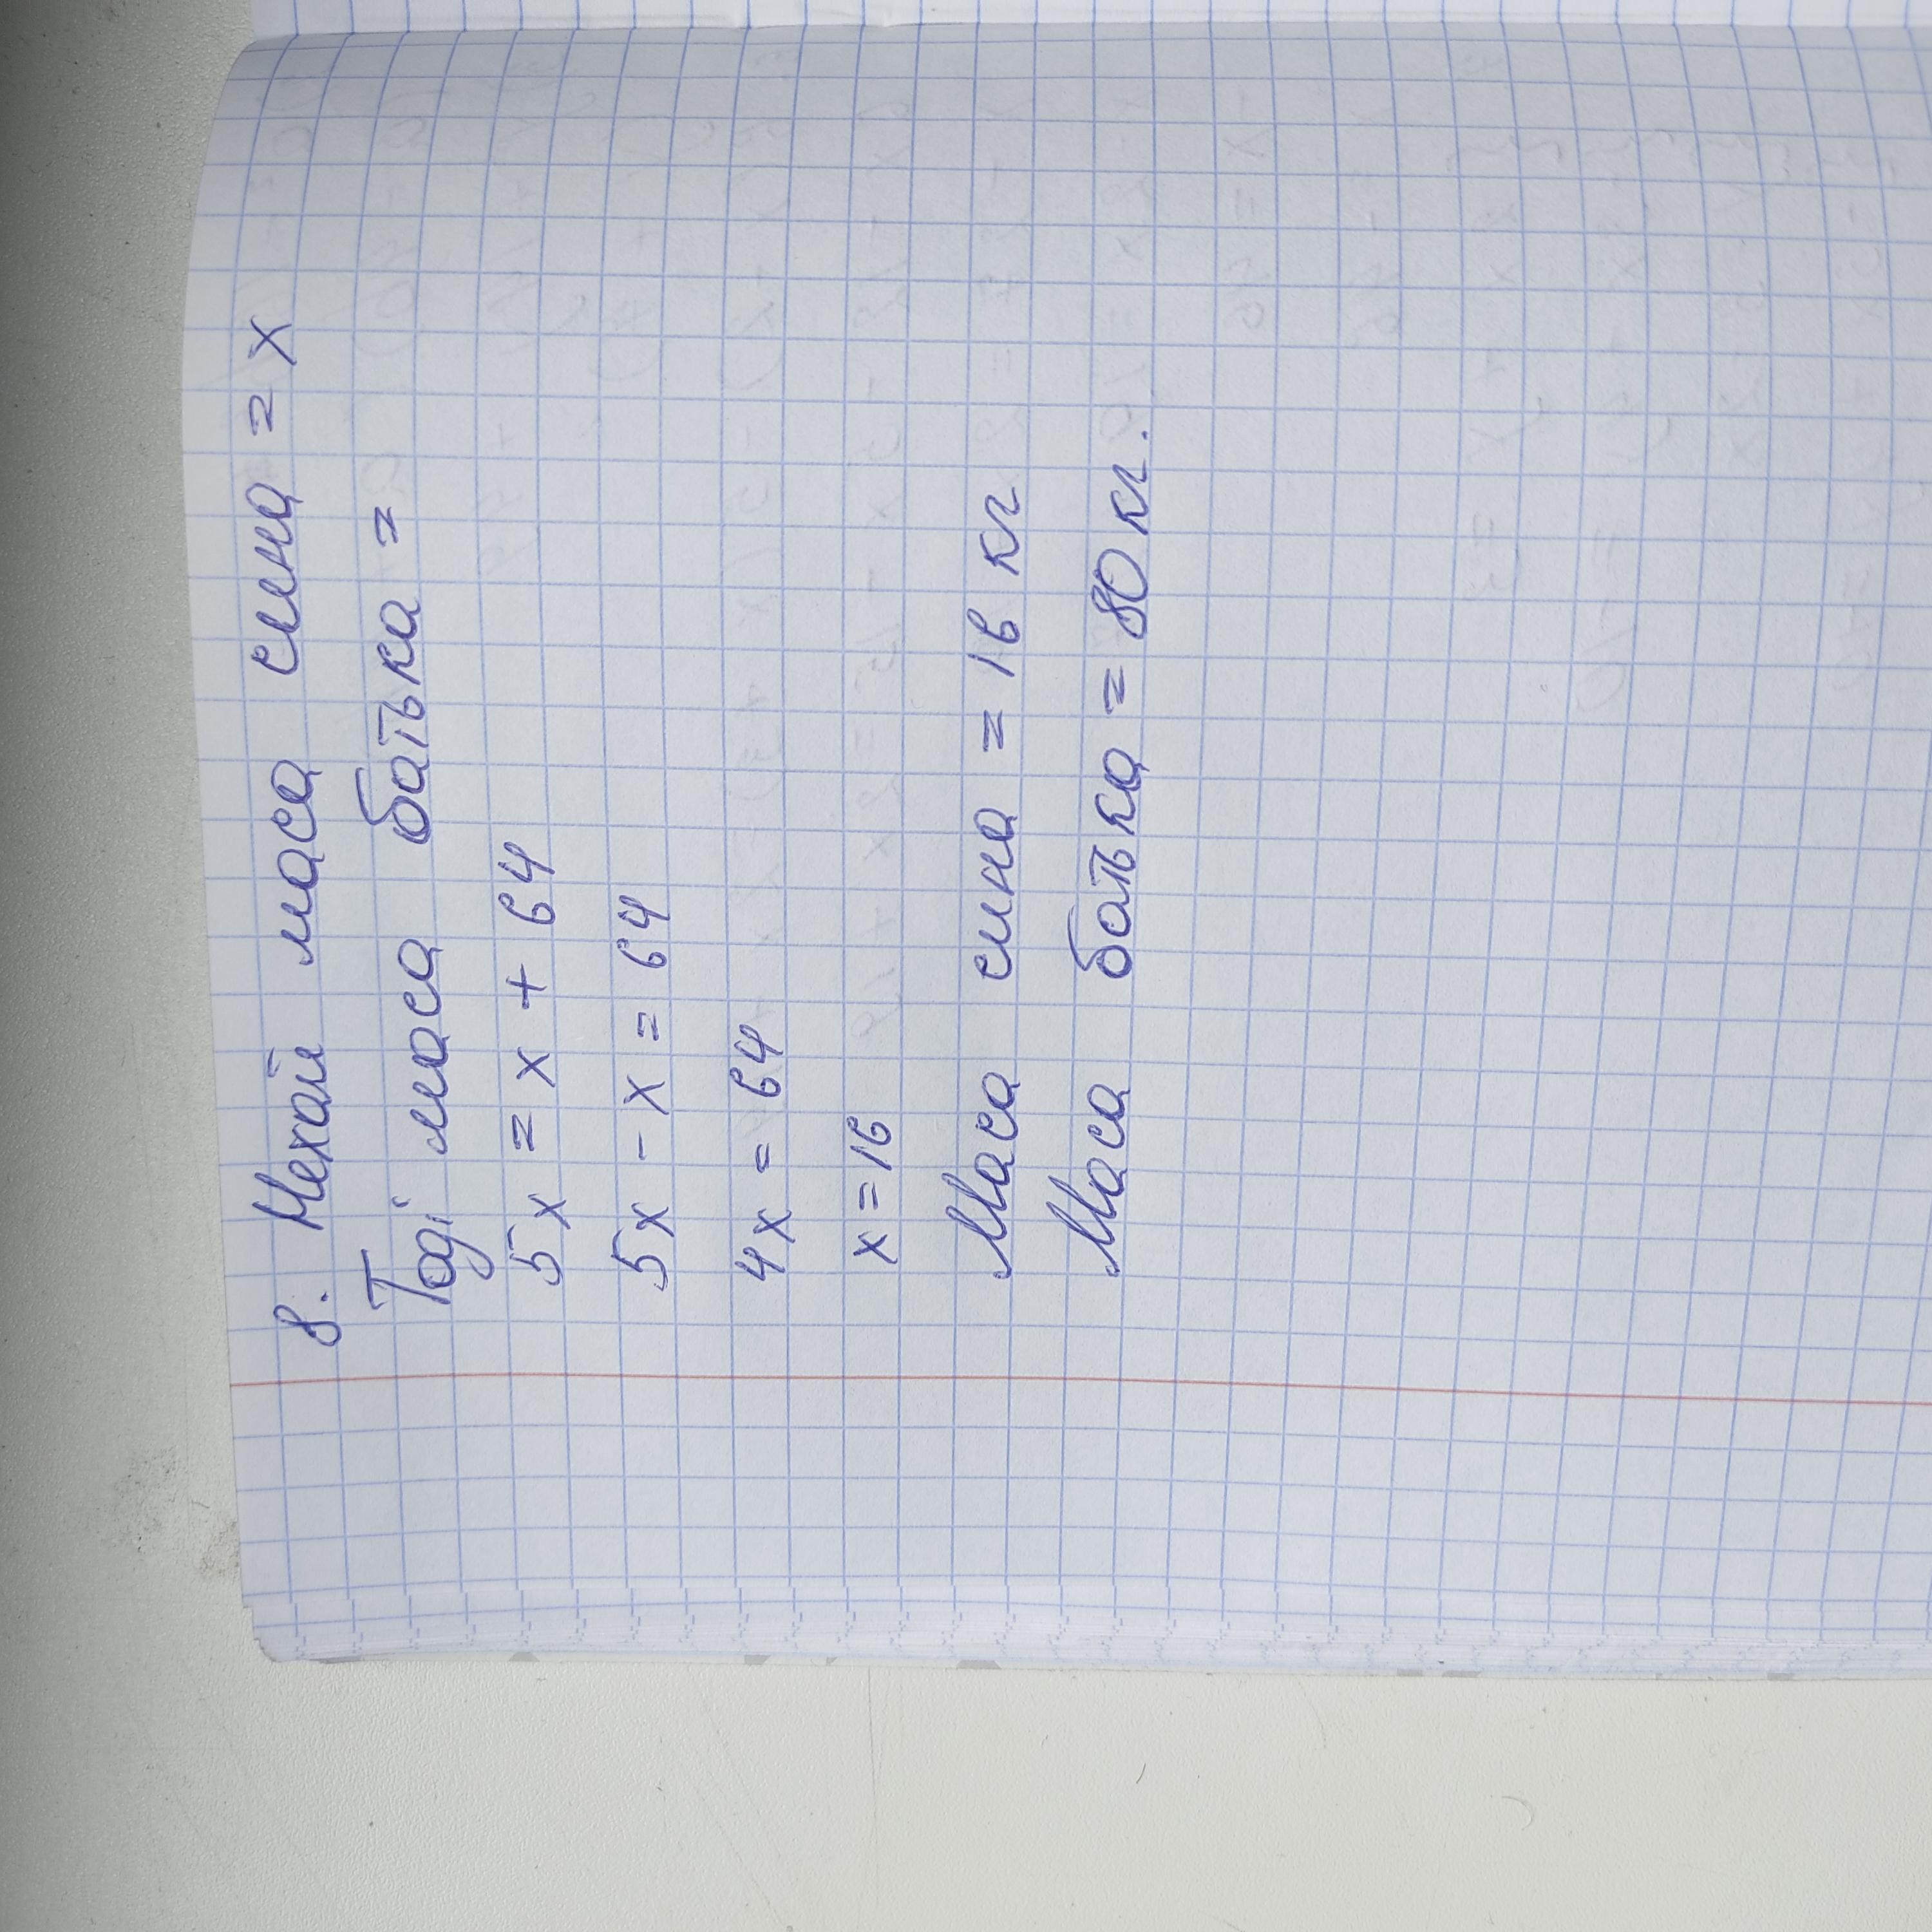 8. Нехай маса сина = х
Тоді маса батька =
5х = х + 64
5х - х = 64
4х = 64
х = 16
Маса сина = 16 кг
Маса батька = 80 кг.